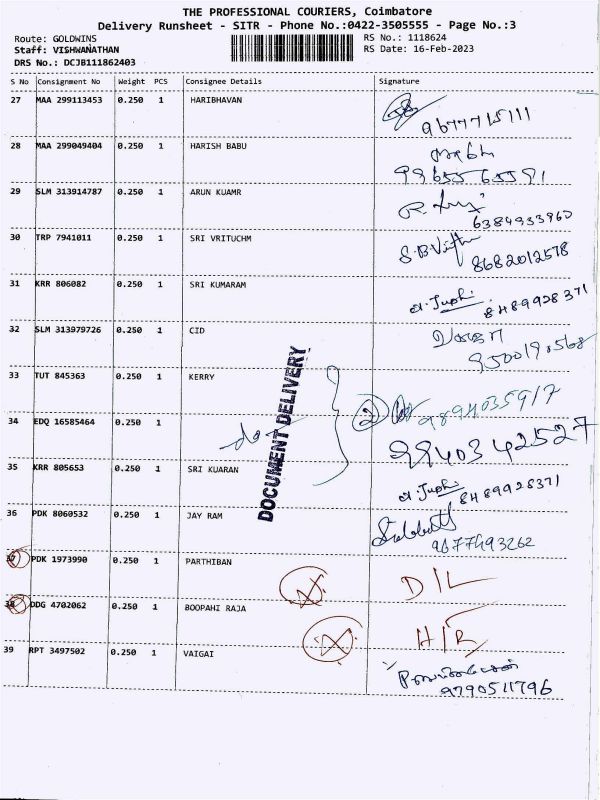 THE PROFESSIONAL COURIERS, Coimbatore
Delivery Runsheet - SITR - Phone No.:0422-3505555 - Page No.:3
Route: GOLDWINS
RS No.: 1118624
Staff: VISHWANATHAN
RS Date: 16-Feb-2023
DRS No.: DCJB111862403
S No Consignment No Weight PCS Consignee Details Signature
27 MAA 299113453 0.250 1 HARIBHAVAN
9677715111
28 MAA 299049404 0.250 1 HARISH BABU
9965565591
29 SLM 313914787 0.250 1 ARUN KUAMR
6384933960
30 TRP 7941011 0.250 1 SRI VRITUCHM
8682012578
31 KRR 806082 0.250 1 SRI KUMARAM
8489928371
32 SLM 313979726 0.250 1 CID
9500190568
33 TUT 845363 0.250 1 KERRY
2 9894035917
34 EDQ 16585464 0.250 1
do
9940342527
35 KRR 805653 0.250 1 SRI KUARAN
8489928371
DOCUMENT DELIVERY
36 PDK 8060532 0.250 1 JAY RAM
9677493262
37 PDK 1973990 0.250 1 PARTHIBAN
D/L
38 DDG 4702062 0.250 1 BOOPAHI RAJA
H/R
39 RPT 3497502 0.250 1 VAIGAI
9790511796